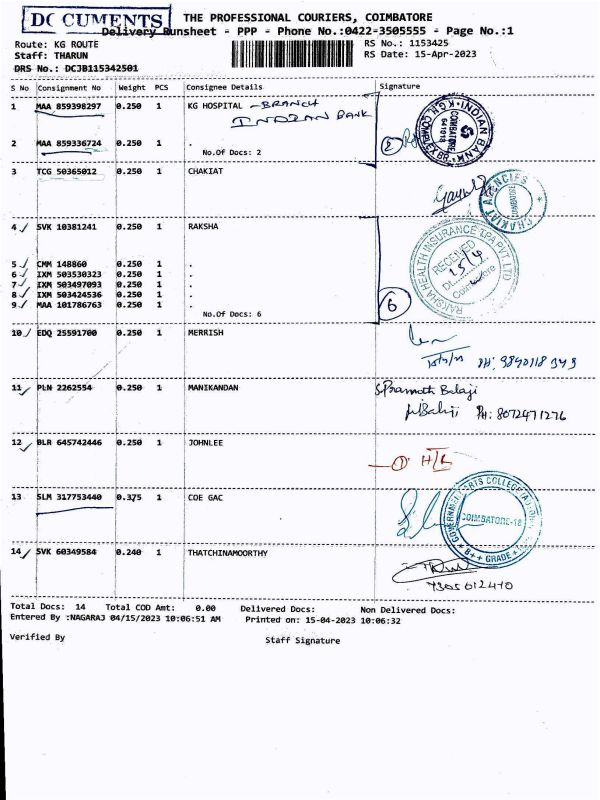 DOCUMENTS
THE PROFESSIONAL COURIERS, COIMBATORE
Delivery Runsheet - PPP - Phone No.:0422-3505555 - Page No.:1
Route: KG ROUTE
RS No.: 1153425
Staff: THARUN
RS Date: 15-Apr-2023
DRS No.: DCJB115342501
S No Consignment No Weight PCS Consignee Details Signature
1 MAA 859398297 0.250 1 KG HOSPITAL - BRANCH
INDIAN BANK
INDIAN BANK K.G.H. COMPLEX BR. COIMBATORE 641018
2 MAA 859336724 0.250 1 .
2
No.Of Docs: 2
3 TCG 50365012 0.250 1 CHAKIAT
CHAKIAT AGENCIES COIMBATORE
4 SVK 10381241 0.250 1 RAKSHA
RAKSHA HEALTH INSURANCE TPA PVT LTD
RECEIVED
15/4
Coimbatore
5 CMM 148860 0.250 1 .
6 IXM 503530323 0.250 1 .
7 IXM 503497093 0.250 1 .
8 IXM 503424536 0.250 1 .
9 MAA 101786763 0.250 1 .
6
No.Of Docs: 6
10 EDQ 25591700 0.250 1 MERRISH
PH: 9840118343
11 PLN 2262554 0.250 1 MANIKANDAN
S.Pramoth Balaji
Ph: 8072471276
12 BLR 645742446 0.250 1 JOHNLEE
1 H/L
13 SLM 317753440 0.375 1 COE GAC
GOVERNMENT ARTS COLLEGE COIMBATORE-18 B++ GRADE
14 SVK 60349584 0.240 1 THATCHINAMOORTHY
7305612410
Total Docs: 14 Total COD Amt: 0.00 Delivered Docs: Non Delivered Docs:
Entered By :NAGARAJ 04/15/2023 10:06:51 AM Printed on: 15-04-2023 10:06:32
Verified By Staff Signature